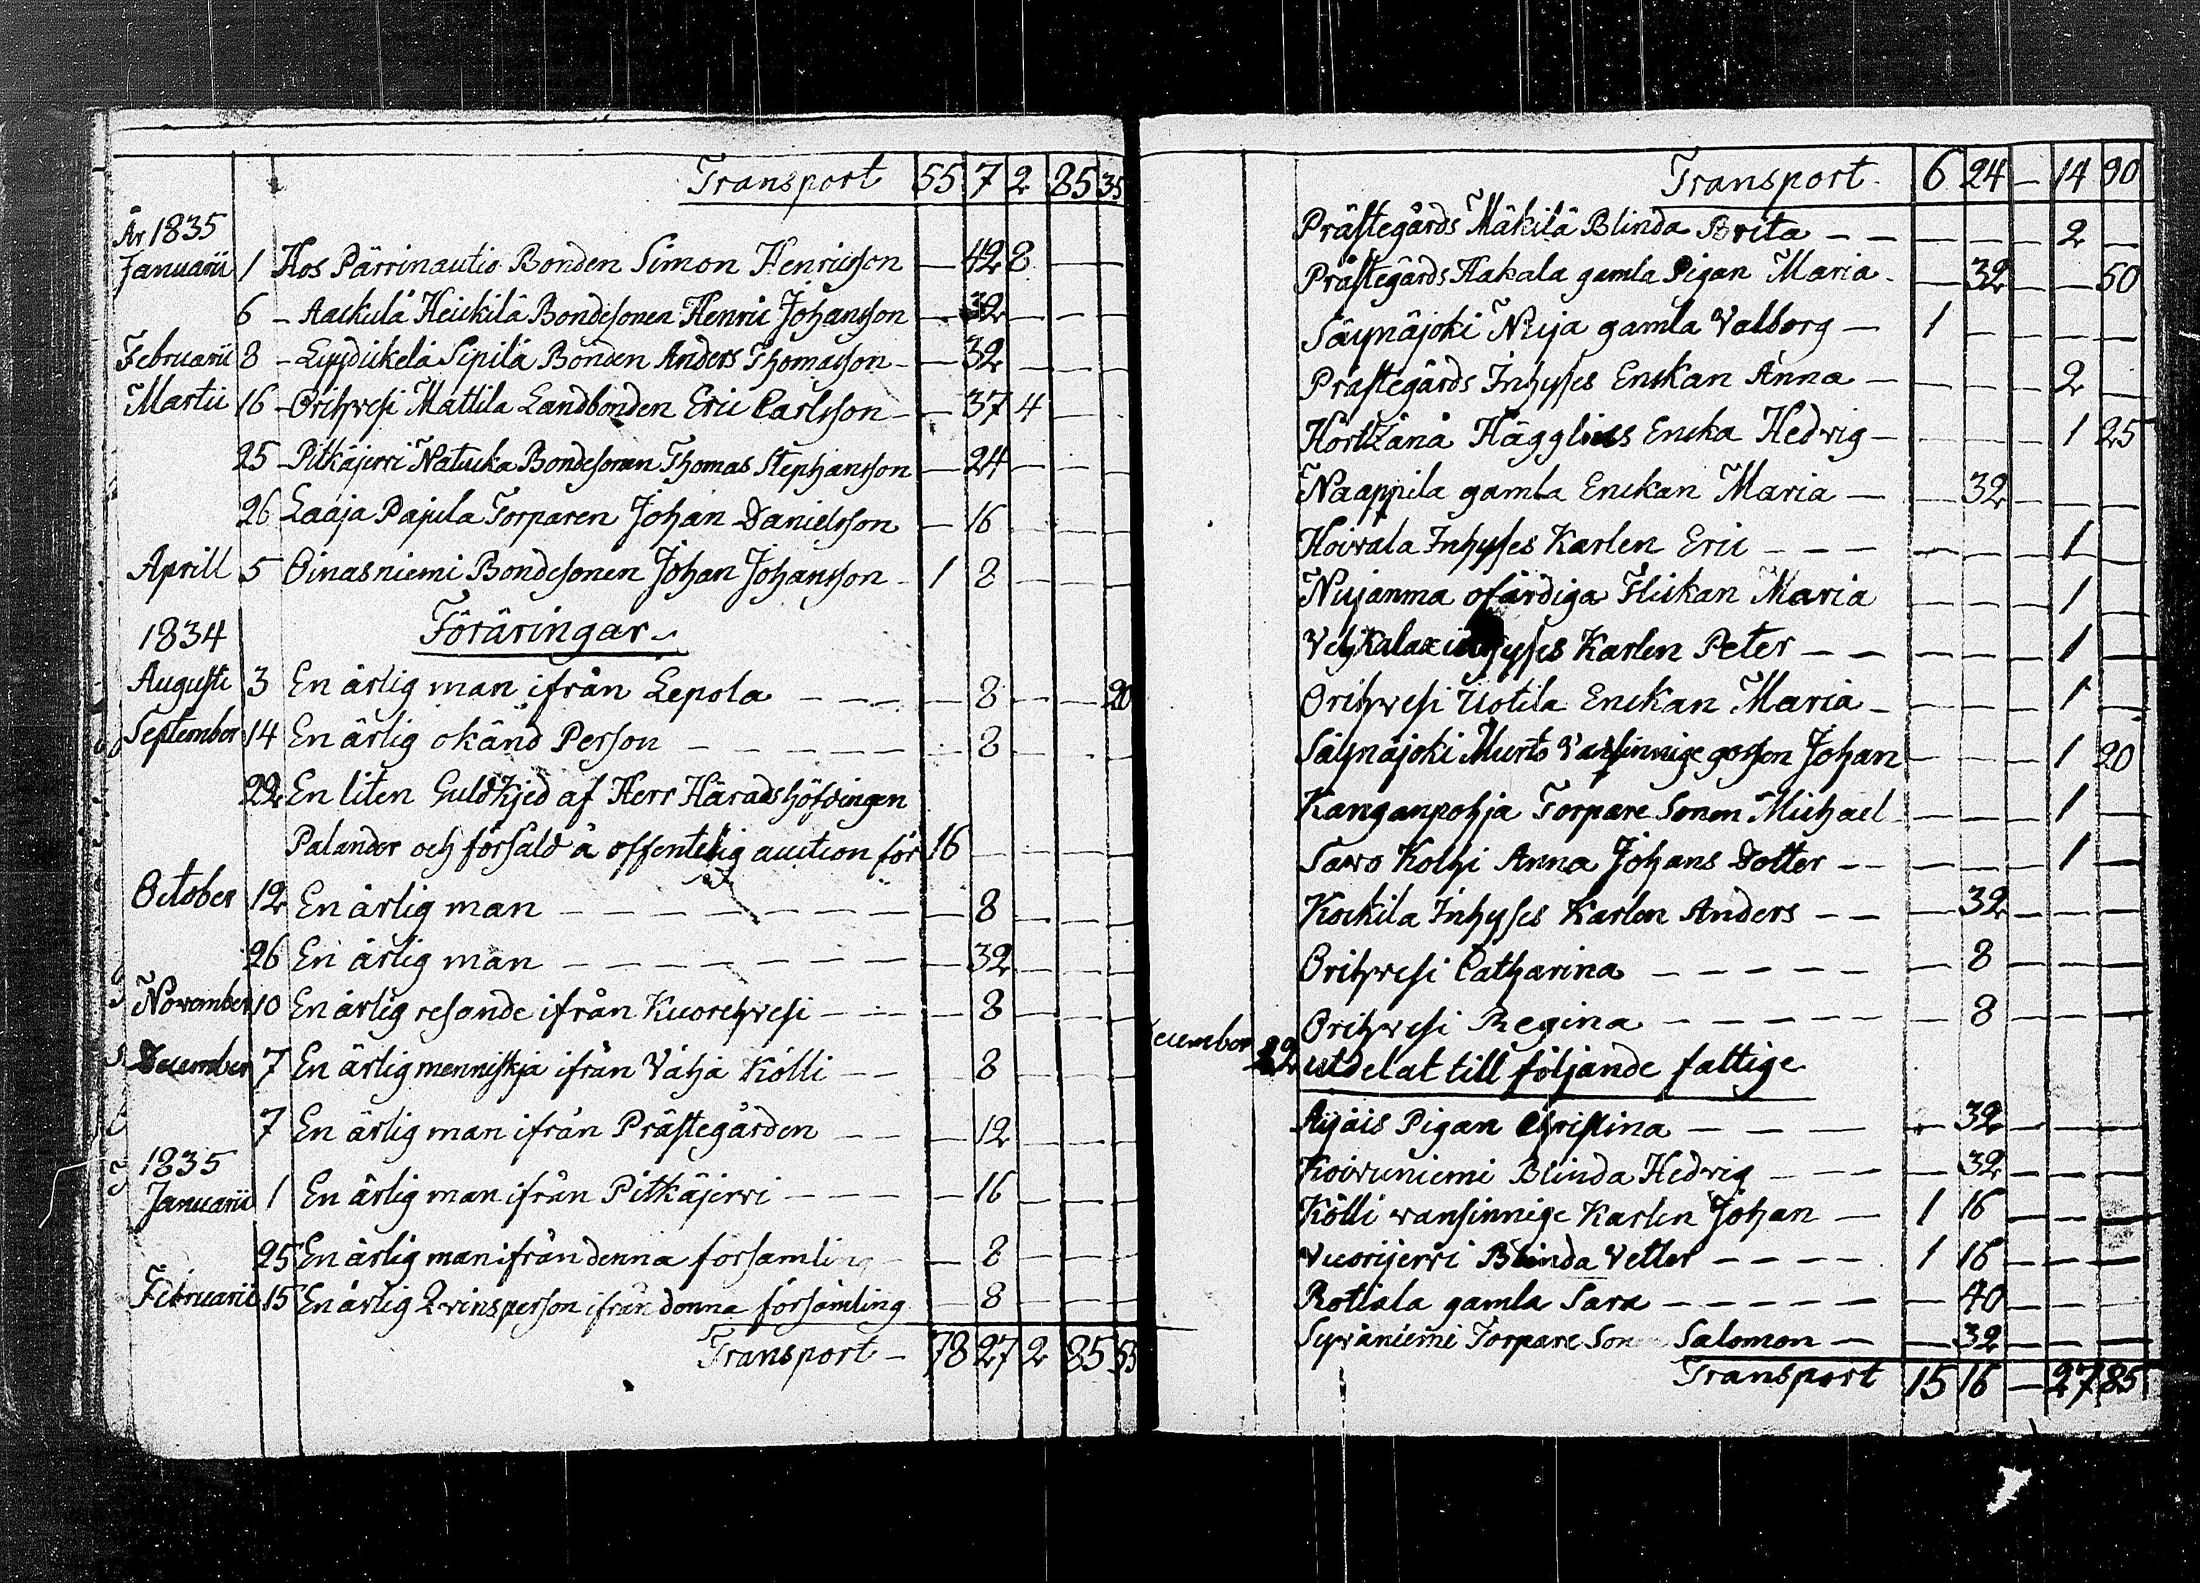 Transport 55 7 2 85 35
År 1835
Januarii 1 Hos Pärrinautio Bonden Simon Henricsson — 42 8 — —
6 — Aackulä Heickilä Bondesonen Henric Johansson — 32 — — —
Februarii 8 — Lyydickelä Sipilä Bonden Anders Thomasson — — 32 — — —
Martii 16 — Orihvesi Mattila Landbonden Eric Carlsson — — 37 4 — —
25 — Pitkäjervi Natucka Bondesonen Thomas Stephansson — 24 — — —
26 Laaja Pajula Torparen Johan Danielsson — 16 — — —
Aprill 5 Oinasniemi Bondesonen Johan Johansson — 1 8 — — —
1834 Föräringar
Augusti 3 En ärlig man ifrån Lepola — — — — 8 — — 20
September 14 En ärlig okänd Person — — — — — — 8 — — —
22 En liten Guldkjed af Herr Häradshöfdingen
Palander och försåld å offentelig auction för 16 — — — —
October 12 En ärlig man — — — — — — — — 8 — — —
26 En ärlig man — — — — — — — — 32 — — —
November 10 En ärlig resande ifrån Kuorehvesi — — — — 8 — — —
December 7 En ärlig menniskja ifrån Vähä Kölli — — — 8 — — —
7 En ärlig man ifrån Prästegården — — — 12 — — —
1835
Januarii 1 En ärlig man ifrån Pitkäjervi — — — — 16 — — —
25 En ärlig man ifrån denna församling — — 8 — — —
Februarii 15 En ärlig Qvinsperson ifrån denna församling — 8 — — —
Transport — 78 27 2 85 55
Transport 6 24 — 14 90
Prästegårds Mäkilä Blinda Brita — — — — — 2 —
Prästegårds Hakala gamla Pigan Maria — — 32 — — 50
Säynäjoki Nuja gamla Valborg — 1 — — — —
Prästegårds Inhyses Enckan Anna — — — — 2 —
Hägglins Encka Hedvig — — — — 1 25
Naappila gamla Enckan Maria — — 32 — — —
Hoivala Inhyses Karlen Eric — — — — — — 1 —
Nujanma ofärdiga Flickan Maria — — — 1 —
Inhyses Karlen Peter — — — — — 1 —
Orihvesi Uotila Enckan Maria — — — — 1 —
Säynäjoki Murto Vansinnige gossen Johan — — — 1 20
Kanganpohja Torpare Sonen Michael — — — — 1 —
Savo Kolhi Anna Johans Dotter — — — — — 1 —
Kockila Inhyses Karlen Anders — — — 32 — — —
Orihvesi Catharina — — — — — — 8 — — —
Orihvesi Regina — — — — — — 8 — — —
December 22 utdelat till följande fattige
Äijäis Pigan Christina — — — — 32 — — —
Koivuniemi Blinda Hedvig — — — 32 — — —
Kölli vansinnige Karlen Johan — 1 16 — — —
Vuorijerri Blinda Vetter — — — — 1 16 — — —
Rotiala gamla Sara — — — — — — 40 — — —
Syväniemi Torpare Sonen Salomon — — 32 — — —
Transport 15 16 — 27 85